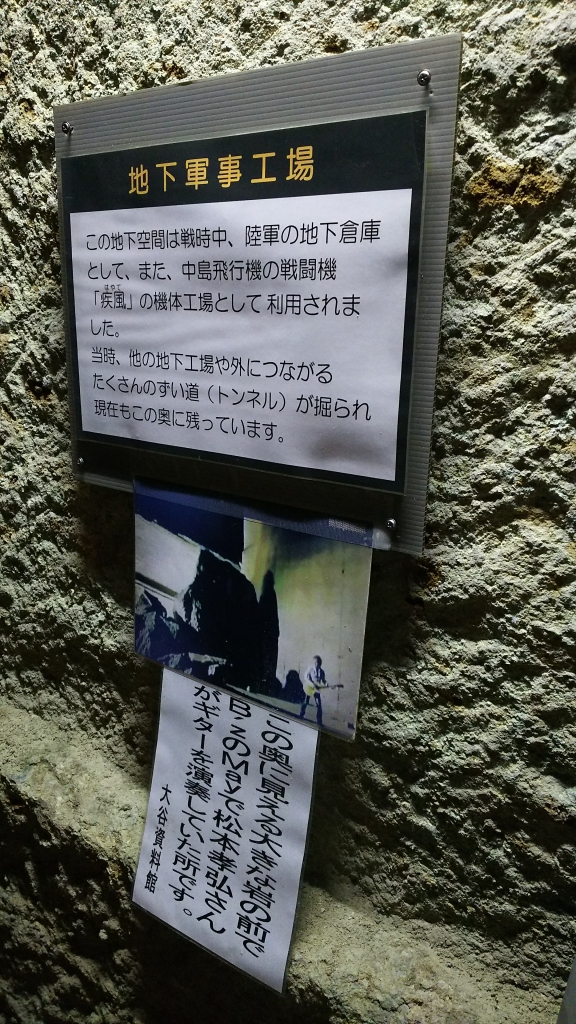 地下軍事工場
この地下空間は戦時中、陸軍の地下倉庫
として、また、中島飛行機の戦闘機
はやて
「疾風」の機体工場として利用されま
した。
当時、他の地下工場や外につながる
たくさんのずい道（トンネル）が掘られ
現在もこの奥に残っています。
この奥に見える大きな岩の前で
B'zのMayで松本孝弘さん
がギターを演奏していた所です。
大谷資料館